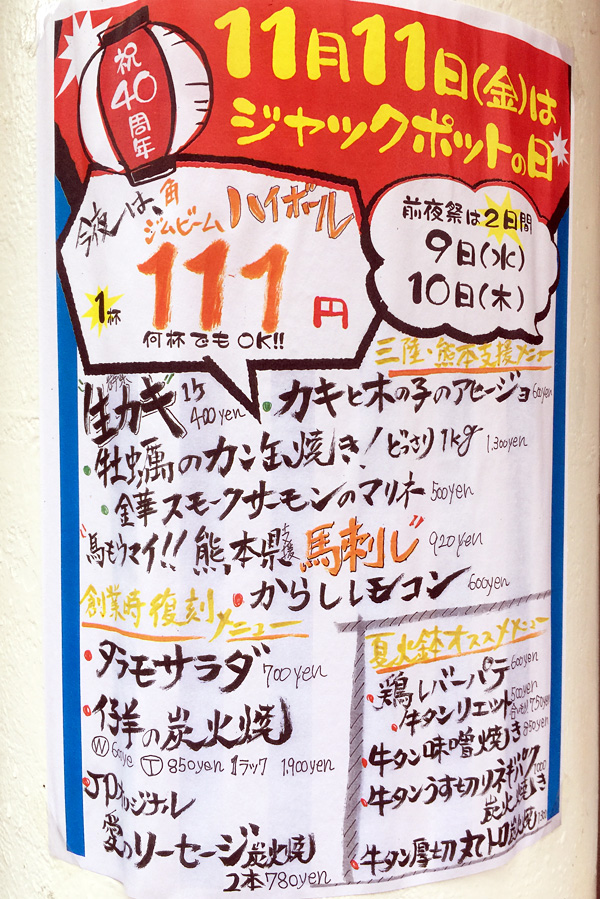 祝40周年
11月11日(金)は
ジャックポットの日
今夜は、角
ジムビーム ハイボール
1杯 111円
何杯でもOK!!
前夜祭は2日間
9日(水)
10日(木)
三陸・熊本支援メニュー
生カキ 1ケ 400yen
・カキと木の子のアヒージョ 600yen
・牡蠣のカン缶焼き! どっさり1kg 1.300yen
・金華スモークサーモンのマリネ 500yen
"馬もウマイ!! 熊本県支援 馬刺し" 920yen
・からしレモコン 600yen
創業時復刻メニュー
・タラモサラダ 700yen
・仔羊の炭火焼
Ⓦ Ⓣ 850yen 1ラック 1.900yen
・JPオリジナル
愛のソーセージ炭火焼
2本780yen
夏火鉢オススメメニュー
・鶏レバーパテ 600yen
・牛タンリエット 500yen
・牛タン味噌焼き 850yen
・牛タンうす切り
炭火焼き
・牛タン厚切 炭火焼